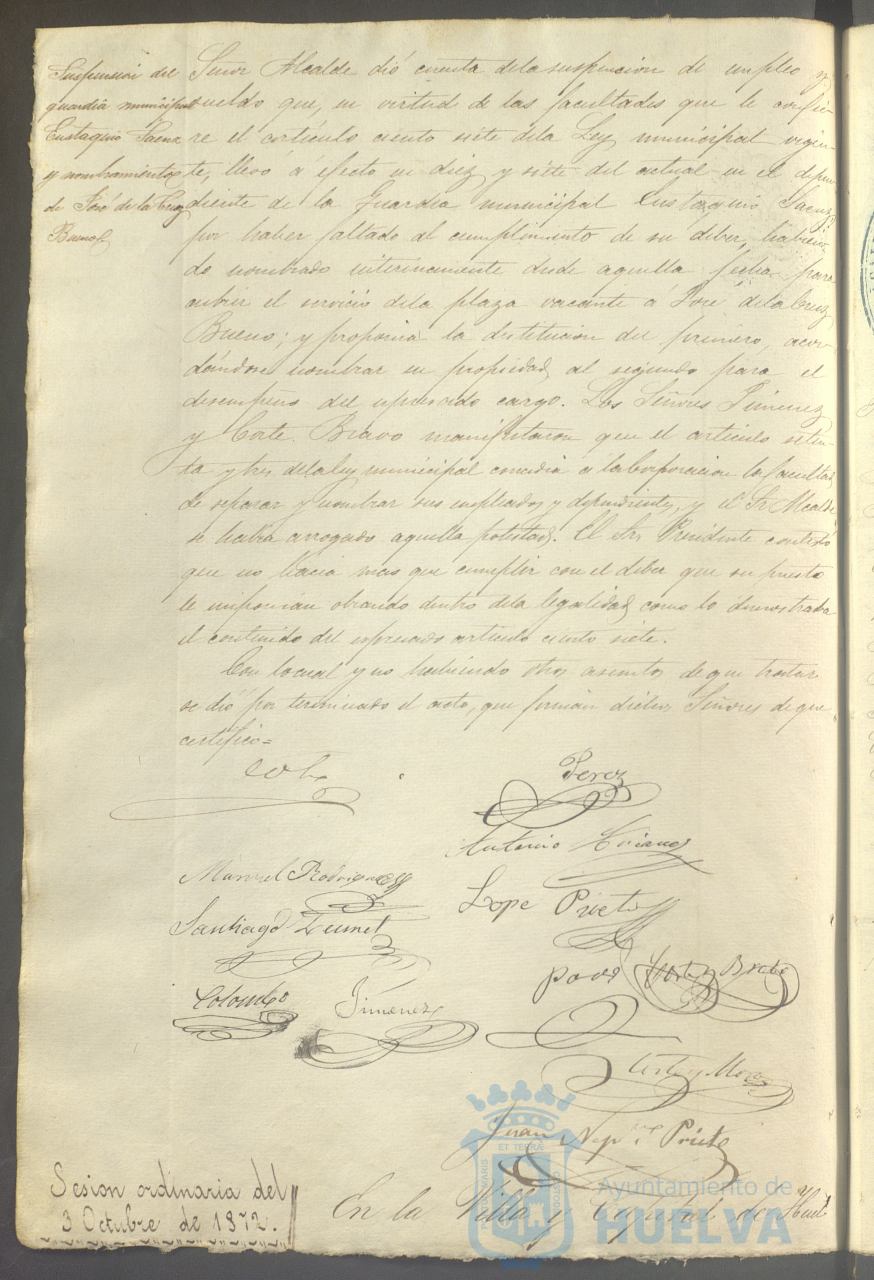 Suspension del
guardia municipal
Eustaquio Saenz
y nombramiento
de José de la Cruz
Bueno
Señor Alcalde dió cuenta de la suspencion de empleo y
sueldo que, en virtud de las facultades que le confie-
re el artículo ciento siete de la Ley municipal vigen-
te, llevó á efecto en diez y siete del actual en el depen-
diente de la Guardia municipal Eustaquio Saenz
por haber faltado al cumplimento de su deber, habien-
do nombrado interinamente desde aquella fecha para
cubrir el servicio de la plaza vacante á José de la Cruz
Bueno; y proponia la destitucion del primero, acor-
dándose nombrar en propiedad al segundo para el
desempeño del espresado cargo. Los Señores Jimenez
y Corte Bravo manifestaron que el artículo seten-
ta y tres de la ley municipal concedia á la Corporacion la facultad
de separar y nombrar sus empleados y dependientes, y el Sr Alcalde
se habia arrogado aquella potestad. El Sr Presidente contestó
que no hacia mas que cumplir con el deber que su puesto
le imponian obrando dentro de la legalidad como lo demostraba
el contenido del espresado artículo ciento siete.
Con lo cual y no habiendo otros asuntos de que tratar
se dió por terminado el acto, que firman dichos Señores de que
certifico=
Perez
Antonio
Manuel Rodriguez
Lope Prieto
Santiago
Corte y Bravo
Colombo
Jimenez
Juan Nep.º Prieto
Sesion ordinaria del
3 Octubre de 1872.
En la Villa y Capital de Huel
Ayuntamiento de
HUELVA